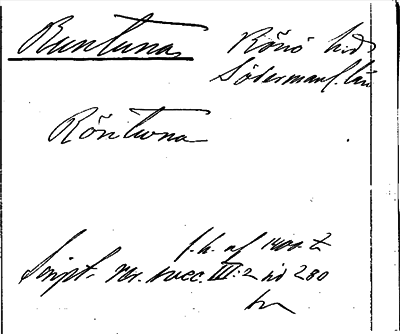 Runtuna Rönö hd
Södermanl. län
Röntuna
f.h. af 1400 t.
Script. rer. svec. III:2 sid 280